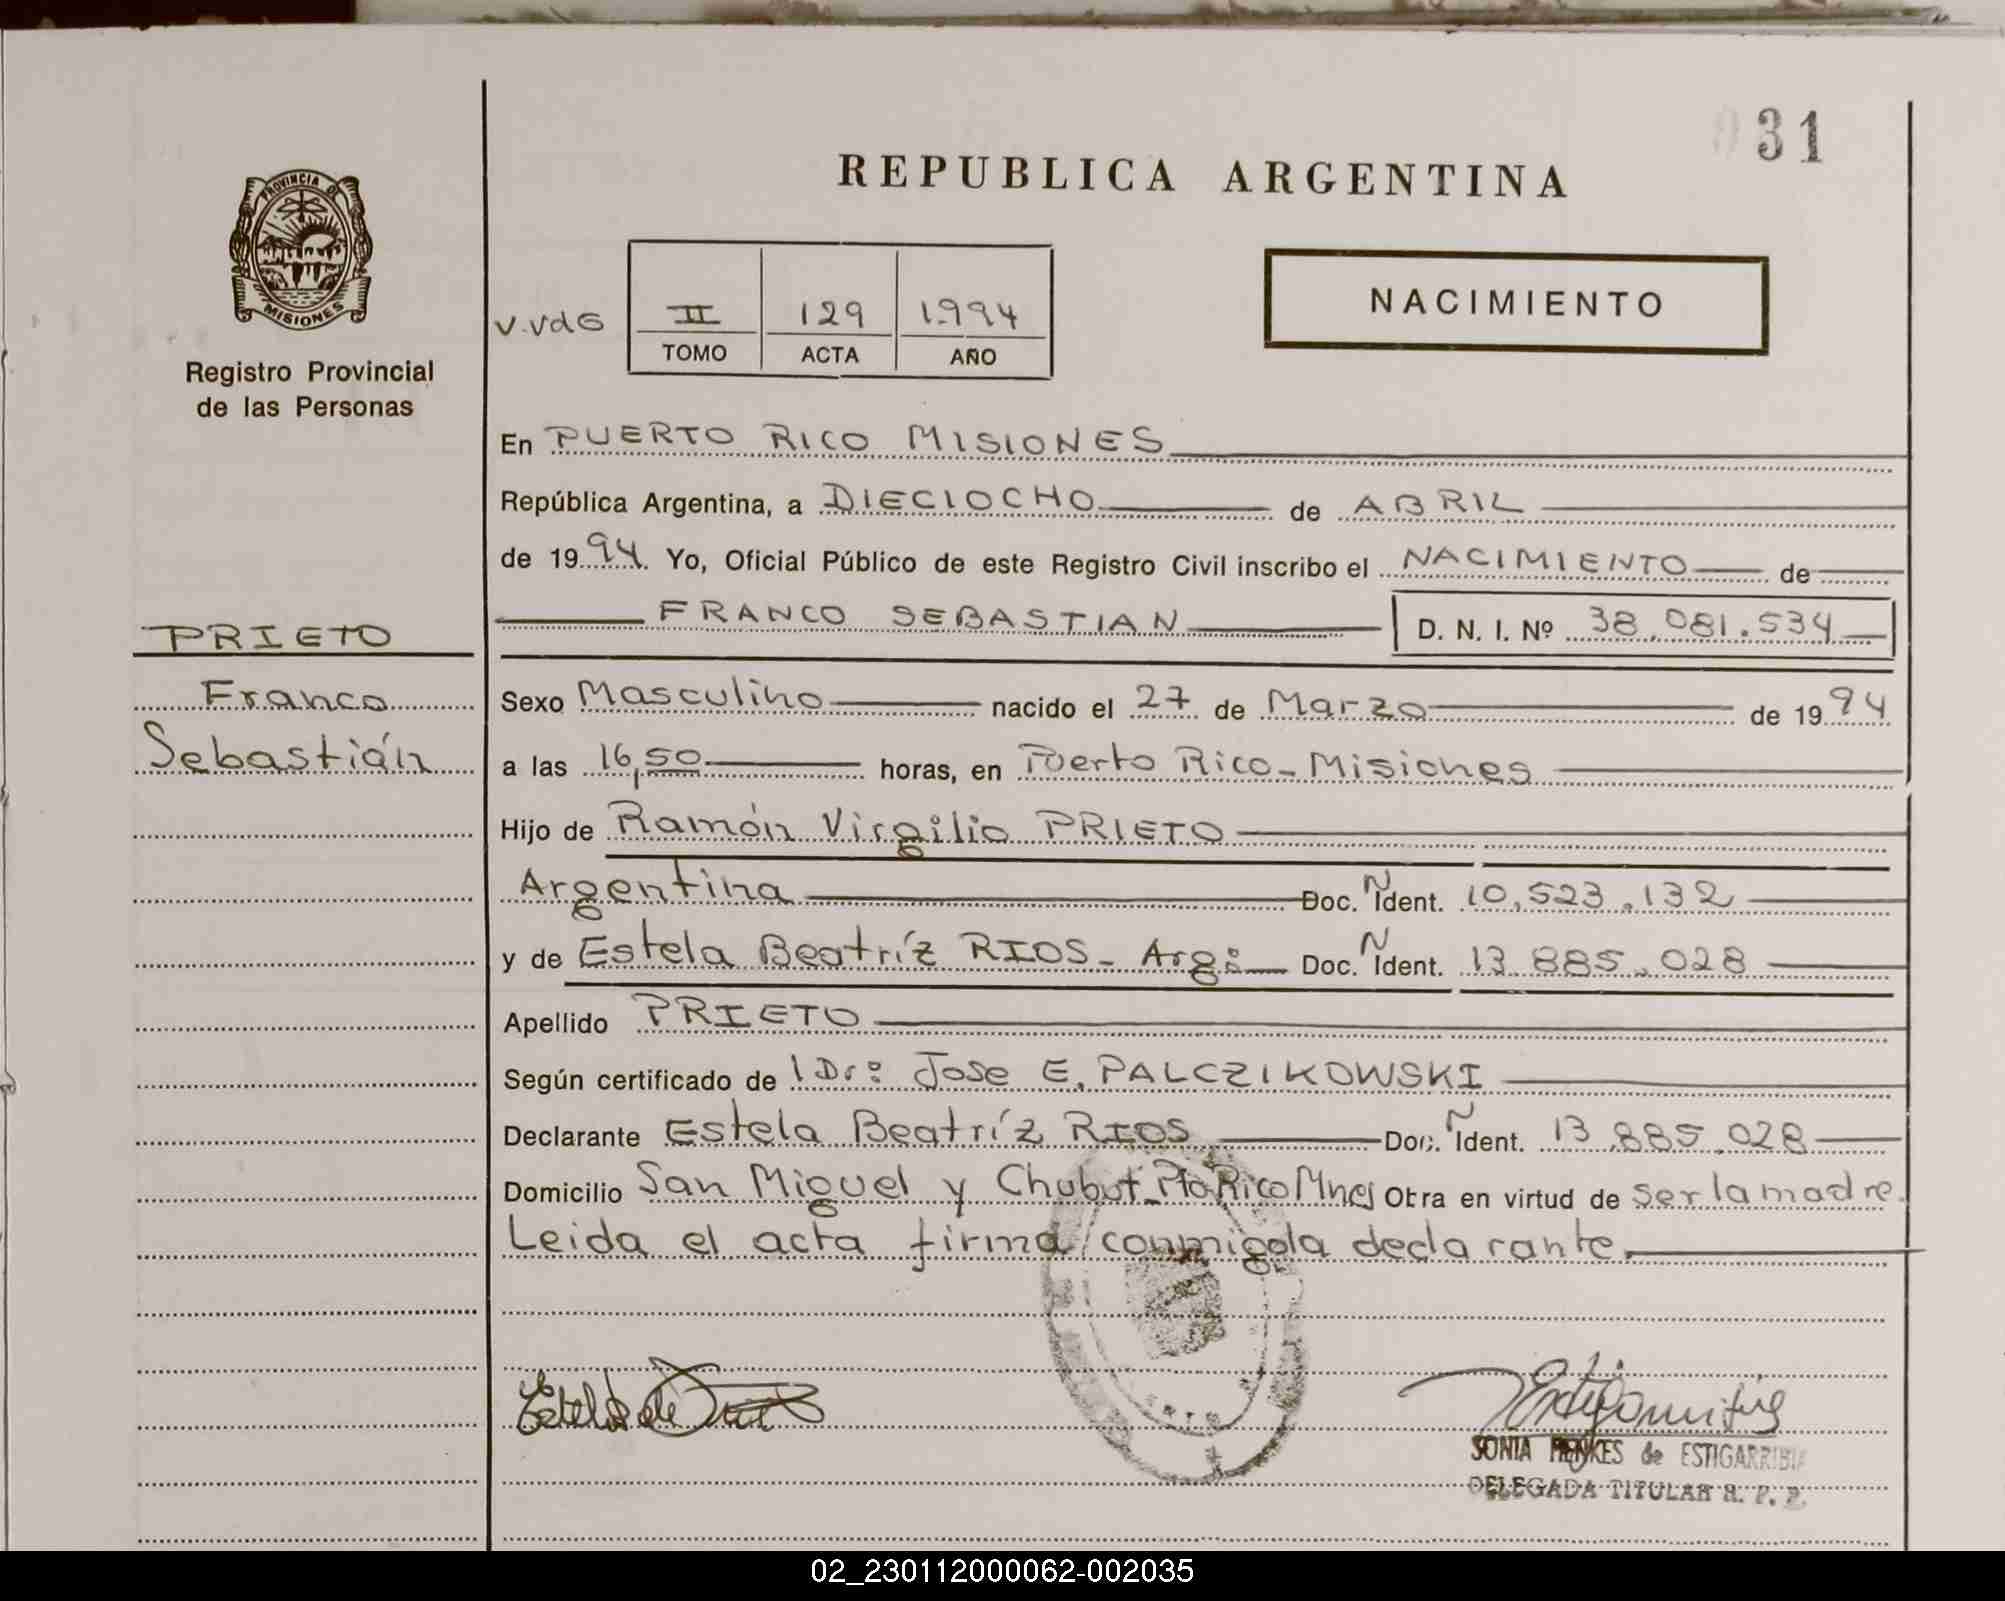 031
REPUBLICA ARGENTINA
PROVINCIA DE
MISIONES
Registro Provincial
de las Personas
V.VdG
II 129 1.994
TOMO ACTA AÑO
NACIMIENTO
En PUERTO RICO MISIONES
República Argentina, a DIECIOCHO de ABRIL
de 1994. Yo, Oficial Público de este Registro Civil inscribo el NACIMIENTO de
FRANCO SEBASTIAN D. N. I. Nº 38.081.534
PRIETO
Franco
Sebastián
Sexo Masculino nacido el 27 de Marzo de 1994
a las 16,50 horas, en Puerto Rico - Misiones
Hijo de Ramón Virgilio PRIETO
Argentina Doc. N Ident. 10.523.132
y de Estela Beatríz RIOS - Arg: Doc. N Ident. 13.885.028
Apellido PRIETO
Según certificado de l Dr: Jose E. PALCZIKOWSKI
Declarante Estela Beatríz RIOS Doc. N Ident. 13.885.028
Domicilio San Miguel y Chubut - Pto Rico Mnes Obra en virtud de ser la madre.
Leida el acta firma conmigo la declarante.
SONIA HENKES de ESTIGARRIBIA
DELEGADA TITULAR R. P. P.
02_230112000062-002035